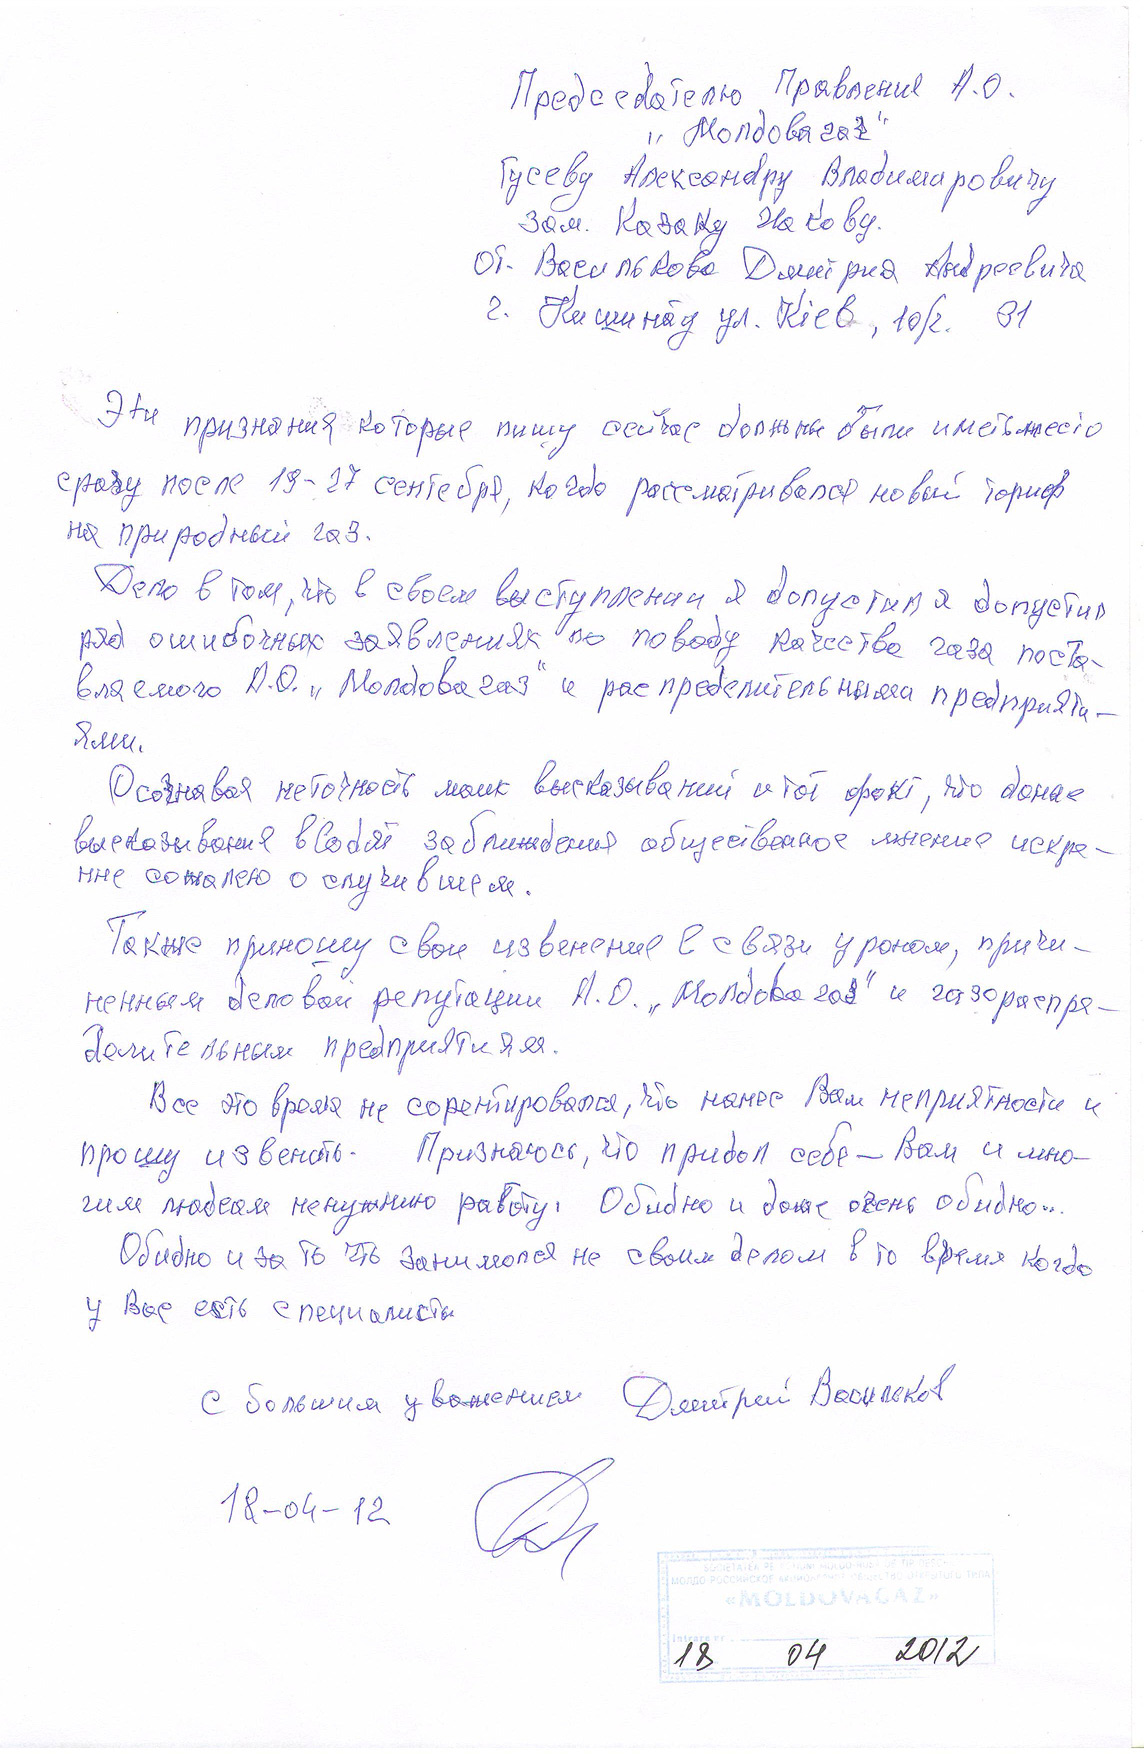 Председателю Правления А.О.
„Молдовагаз"
Гусеву Александру Владимировичу
зам. Казаку Якову.
от. Василькова Дмитрия Андреевича
г. Кишинэу ул. Kiev, 10/2. 91
Эти признания которые пишу сейчас должны были иметь место
сразу после 19-27 сентября, когда рассматривался новый тариф
на природный газ.
Дело в том, что в своем выступлении я допустил я допустил
ряд ошибочных заявлениях по поводу качества газа поста-
вляемого А.О. „Молдовагаз" и распределительными предприяти-
ями.
Осознавая неточность моих высказываний и тот факт, что данае
высказывания вводят заближдения общественное мнение искре-
нне сожалею о случившем.
Также приношу свои извенение в связи уроном, причи-
ненным деловой репутации А.О. „Молдовагаз" и газораспре-
делительным предприятиям.
Все это время не сорентировался, что нанес Вам неприятности и
прошу извенить. Признаюсь, что придал себе - Вам и мно-
гим людеам ненужнию работу. Обидно и даже очень обидно...
Обидно и за то что занимался не своим делом в то время когда
у Вас есть специалисты
с большим уважением Дмитрий Васильков
18-04-12
МОЛДО-РОССИЙСКОЕ АКЦИОНЕРНОЕ ОБЩЕСТВО ОТКРЫТОГО ТИПА
«MOLDOVAGAZ»
Intrare nr.
18 04 2012